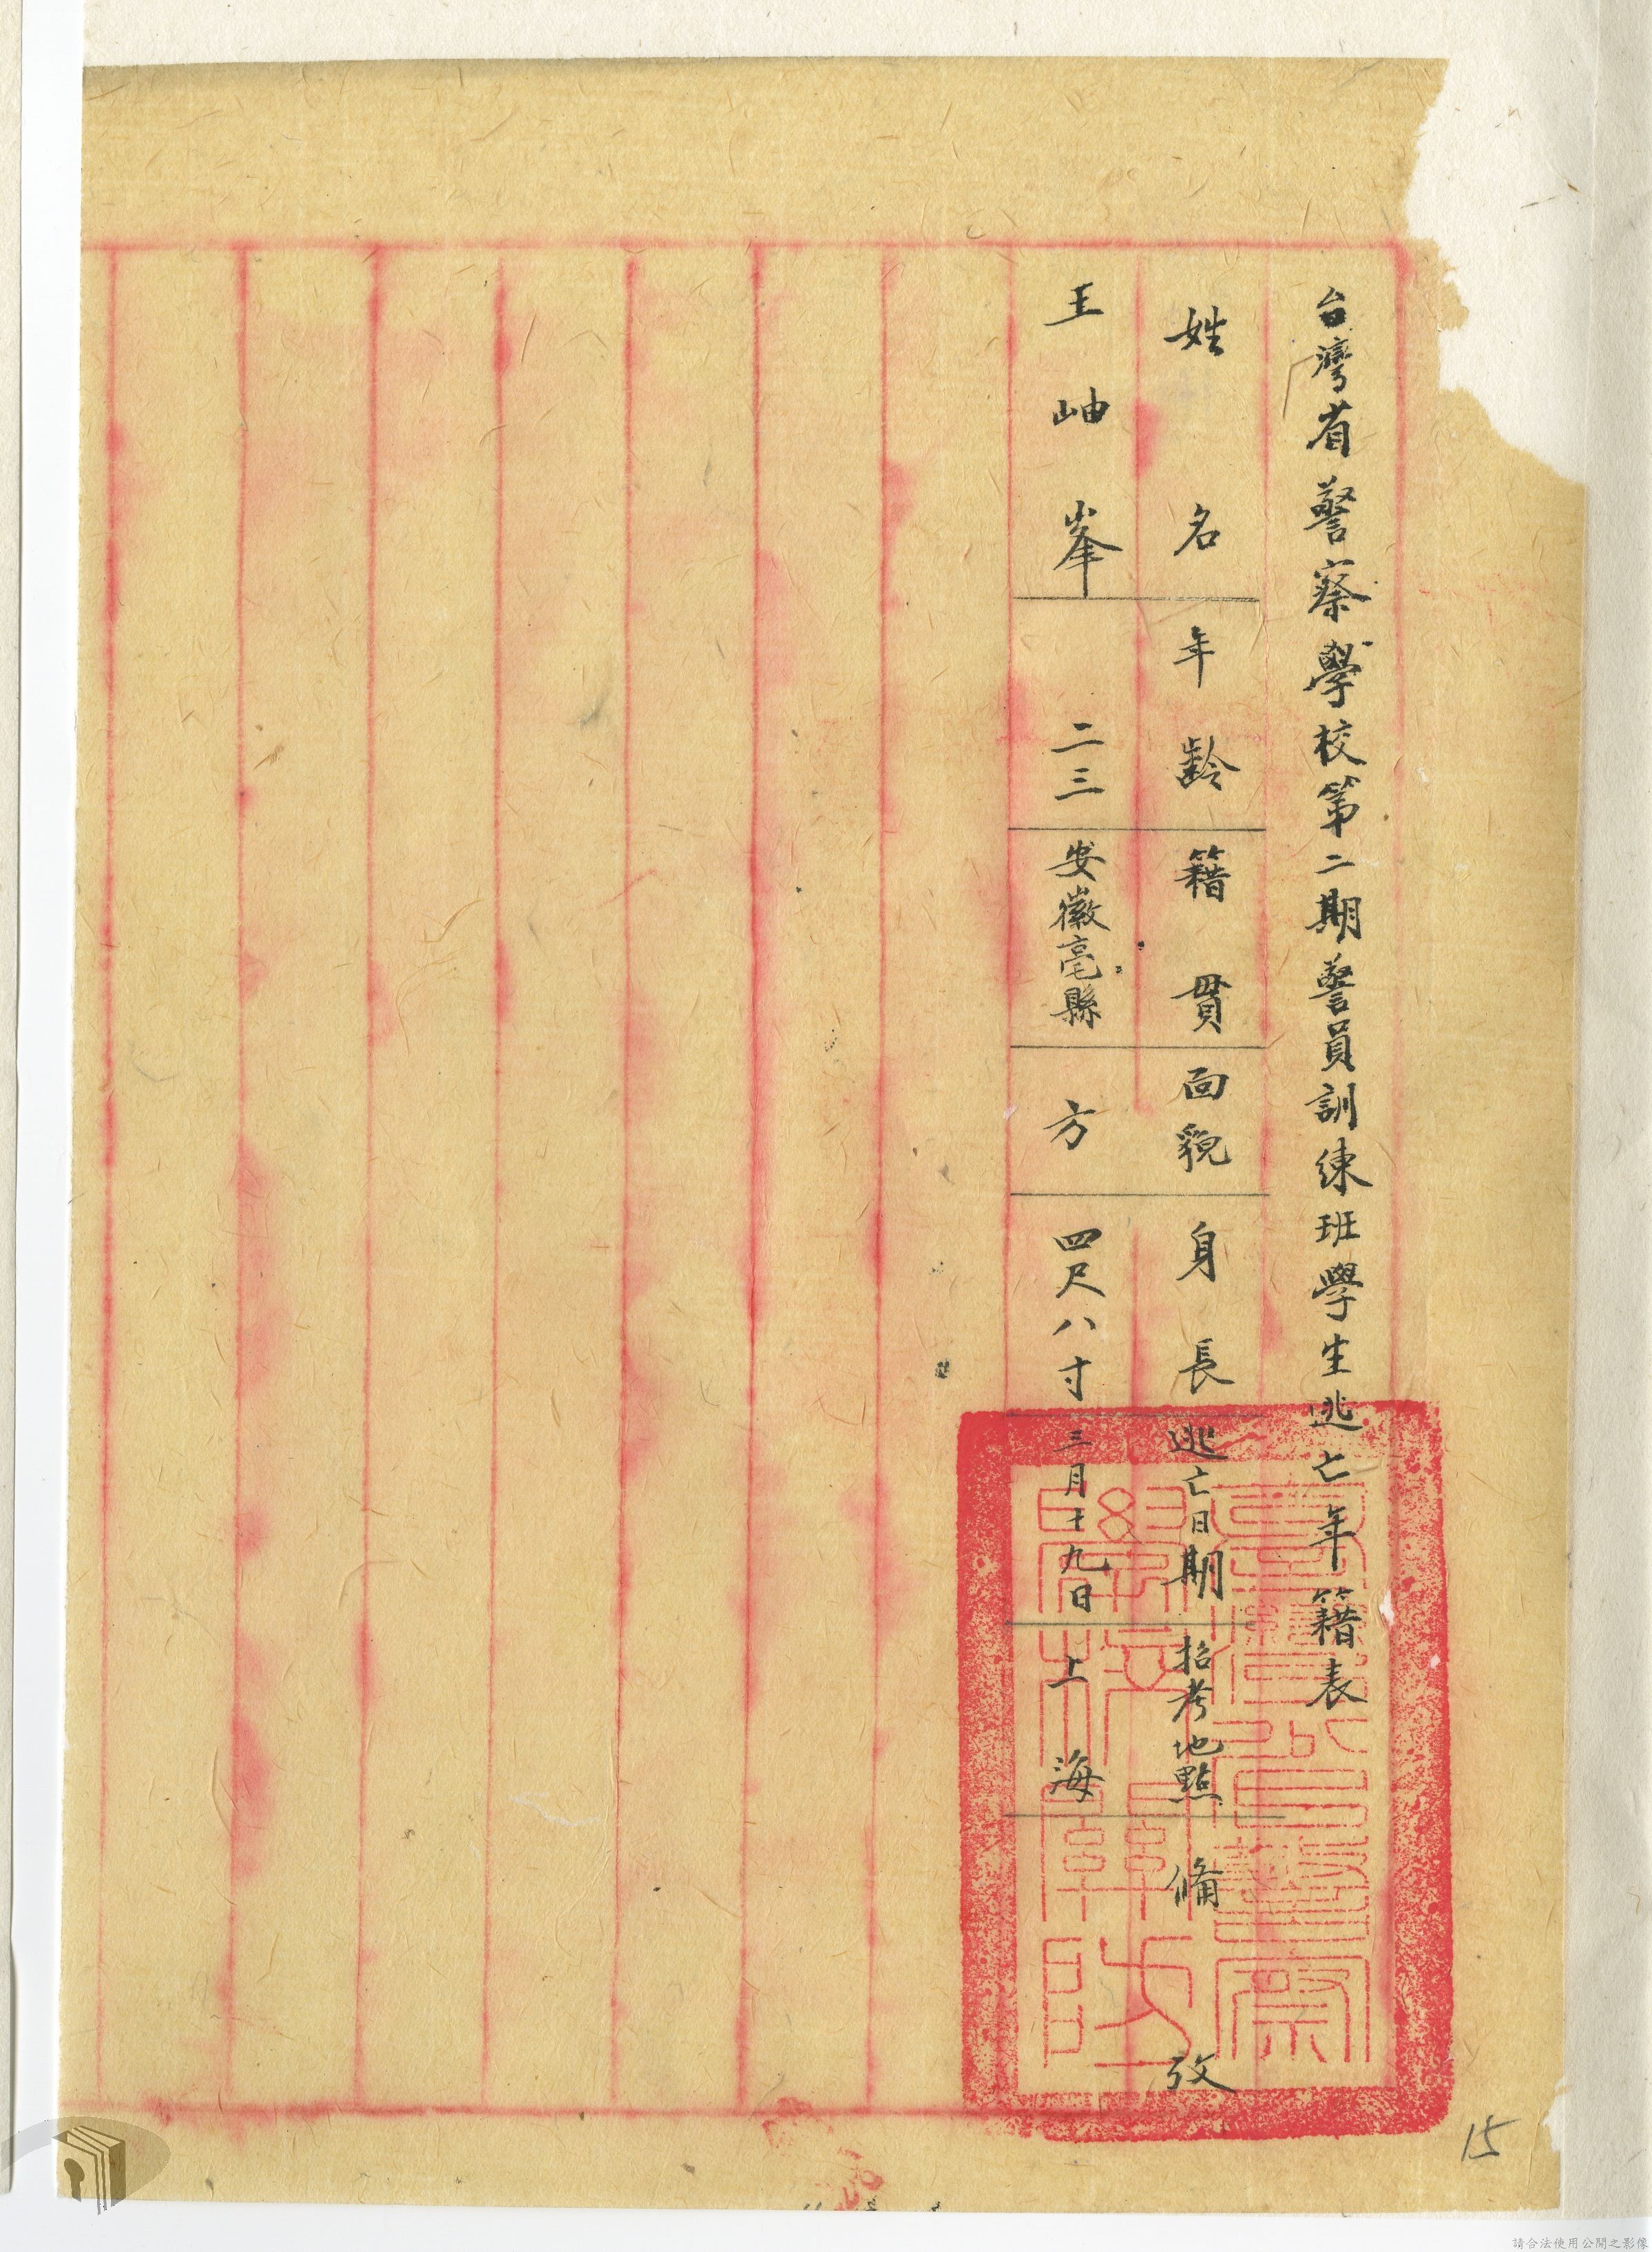 台灣省警察學校第二期警員訓練班學生逃亡年籍表
姓名 年齡 籍貫 面貌 身長 逃亡日期 招考地點 備攷
王岫峯 二三 安徽亳縣 方 四尺八寸 三月十九日 上海
15
請合法使用公開之影像